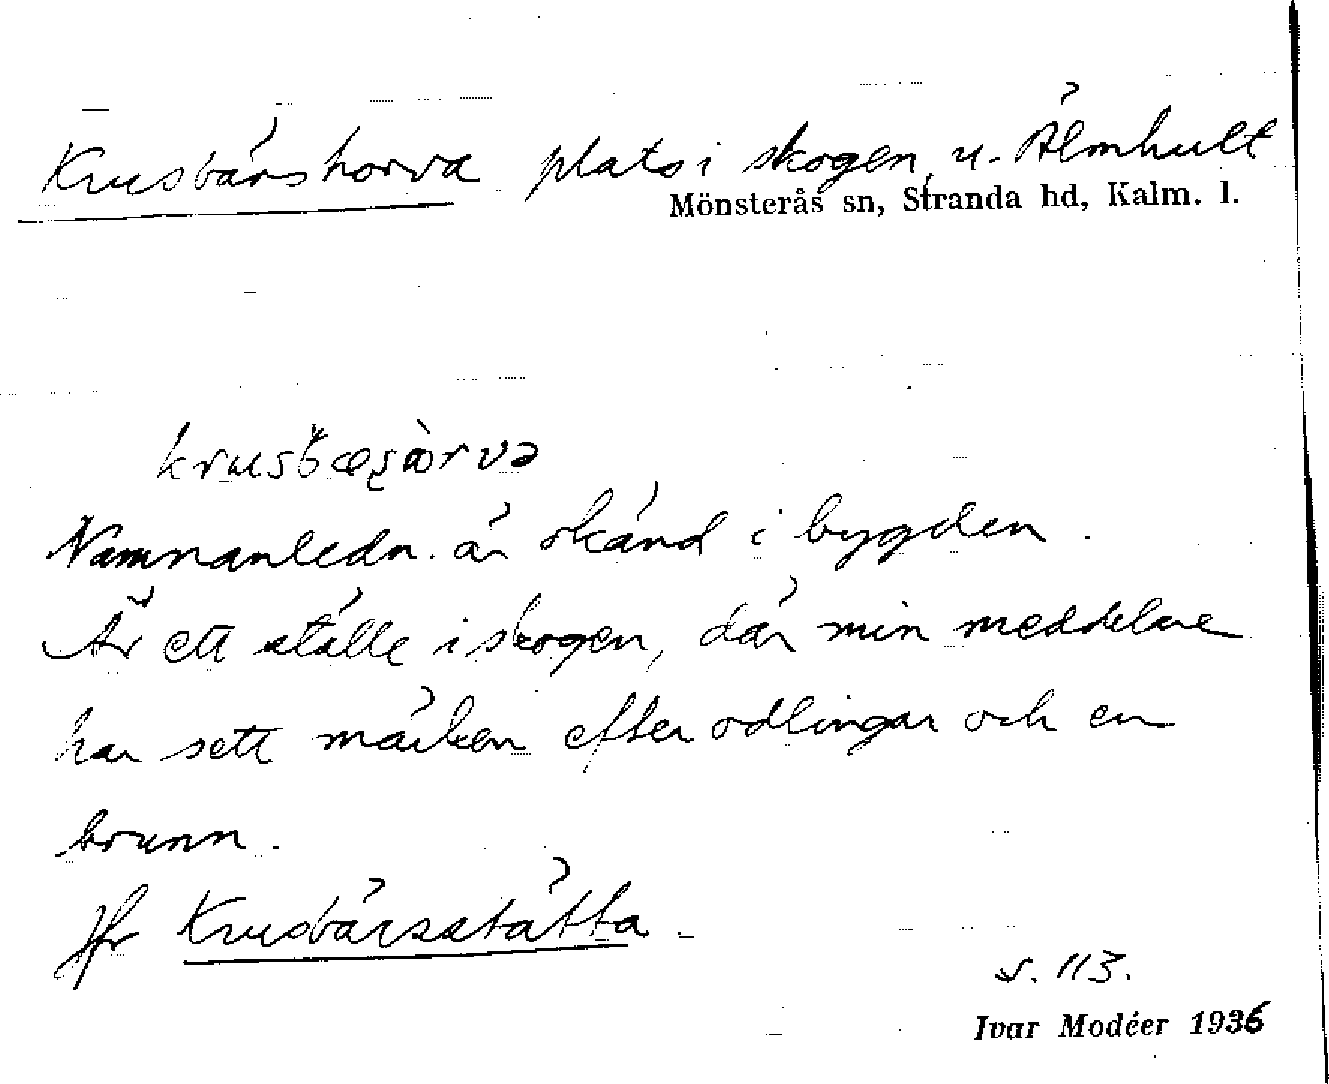 Krusbärshorva plats i skogen, u. Älmhult
Mönsterås sn, Stranda hd, Kalm. l.
krusbæşòrvə
Namnanledn. är okänd i bygden.
Är ett ställe i skogen, där min meddelare
har sett märken efter odlingar och en
brunn.
Jfr Krusbärsstätta.
s. 113.
Ivar Modéer 1936